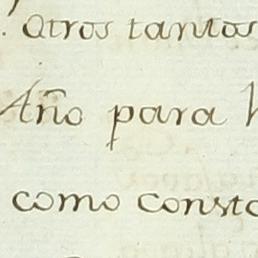 Otros tantos
Año para
como const